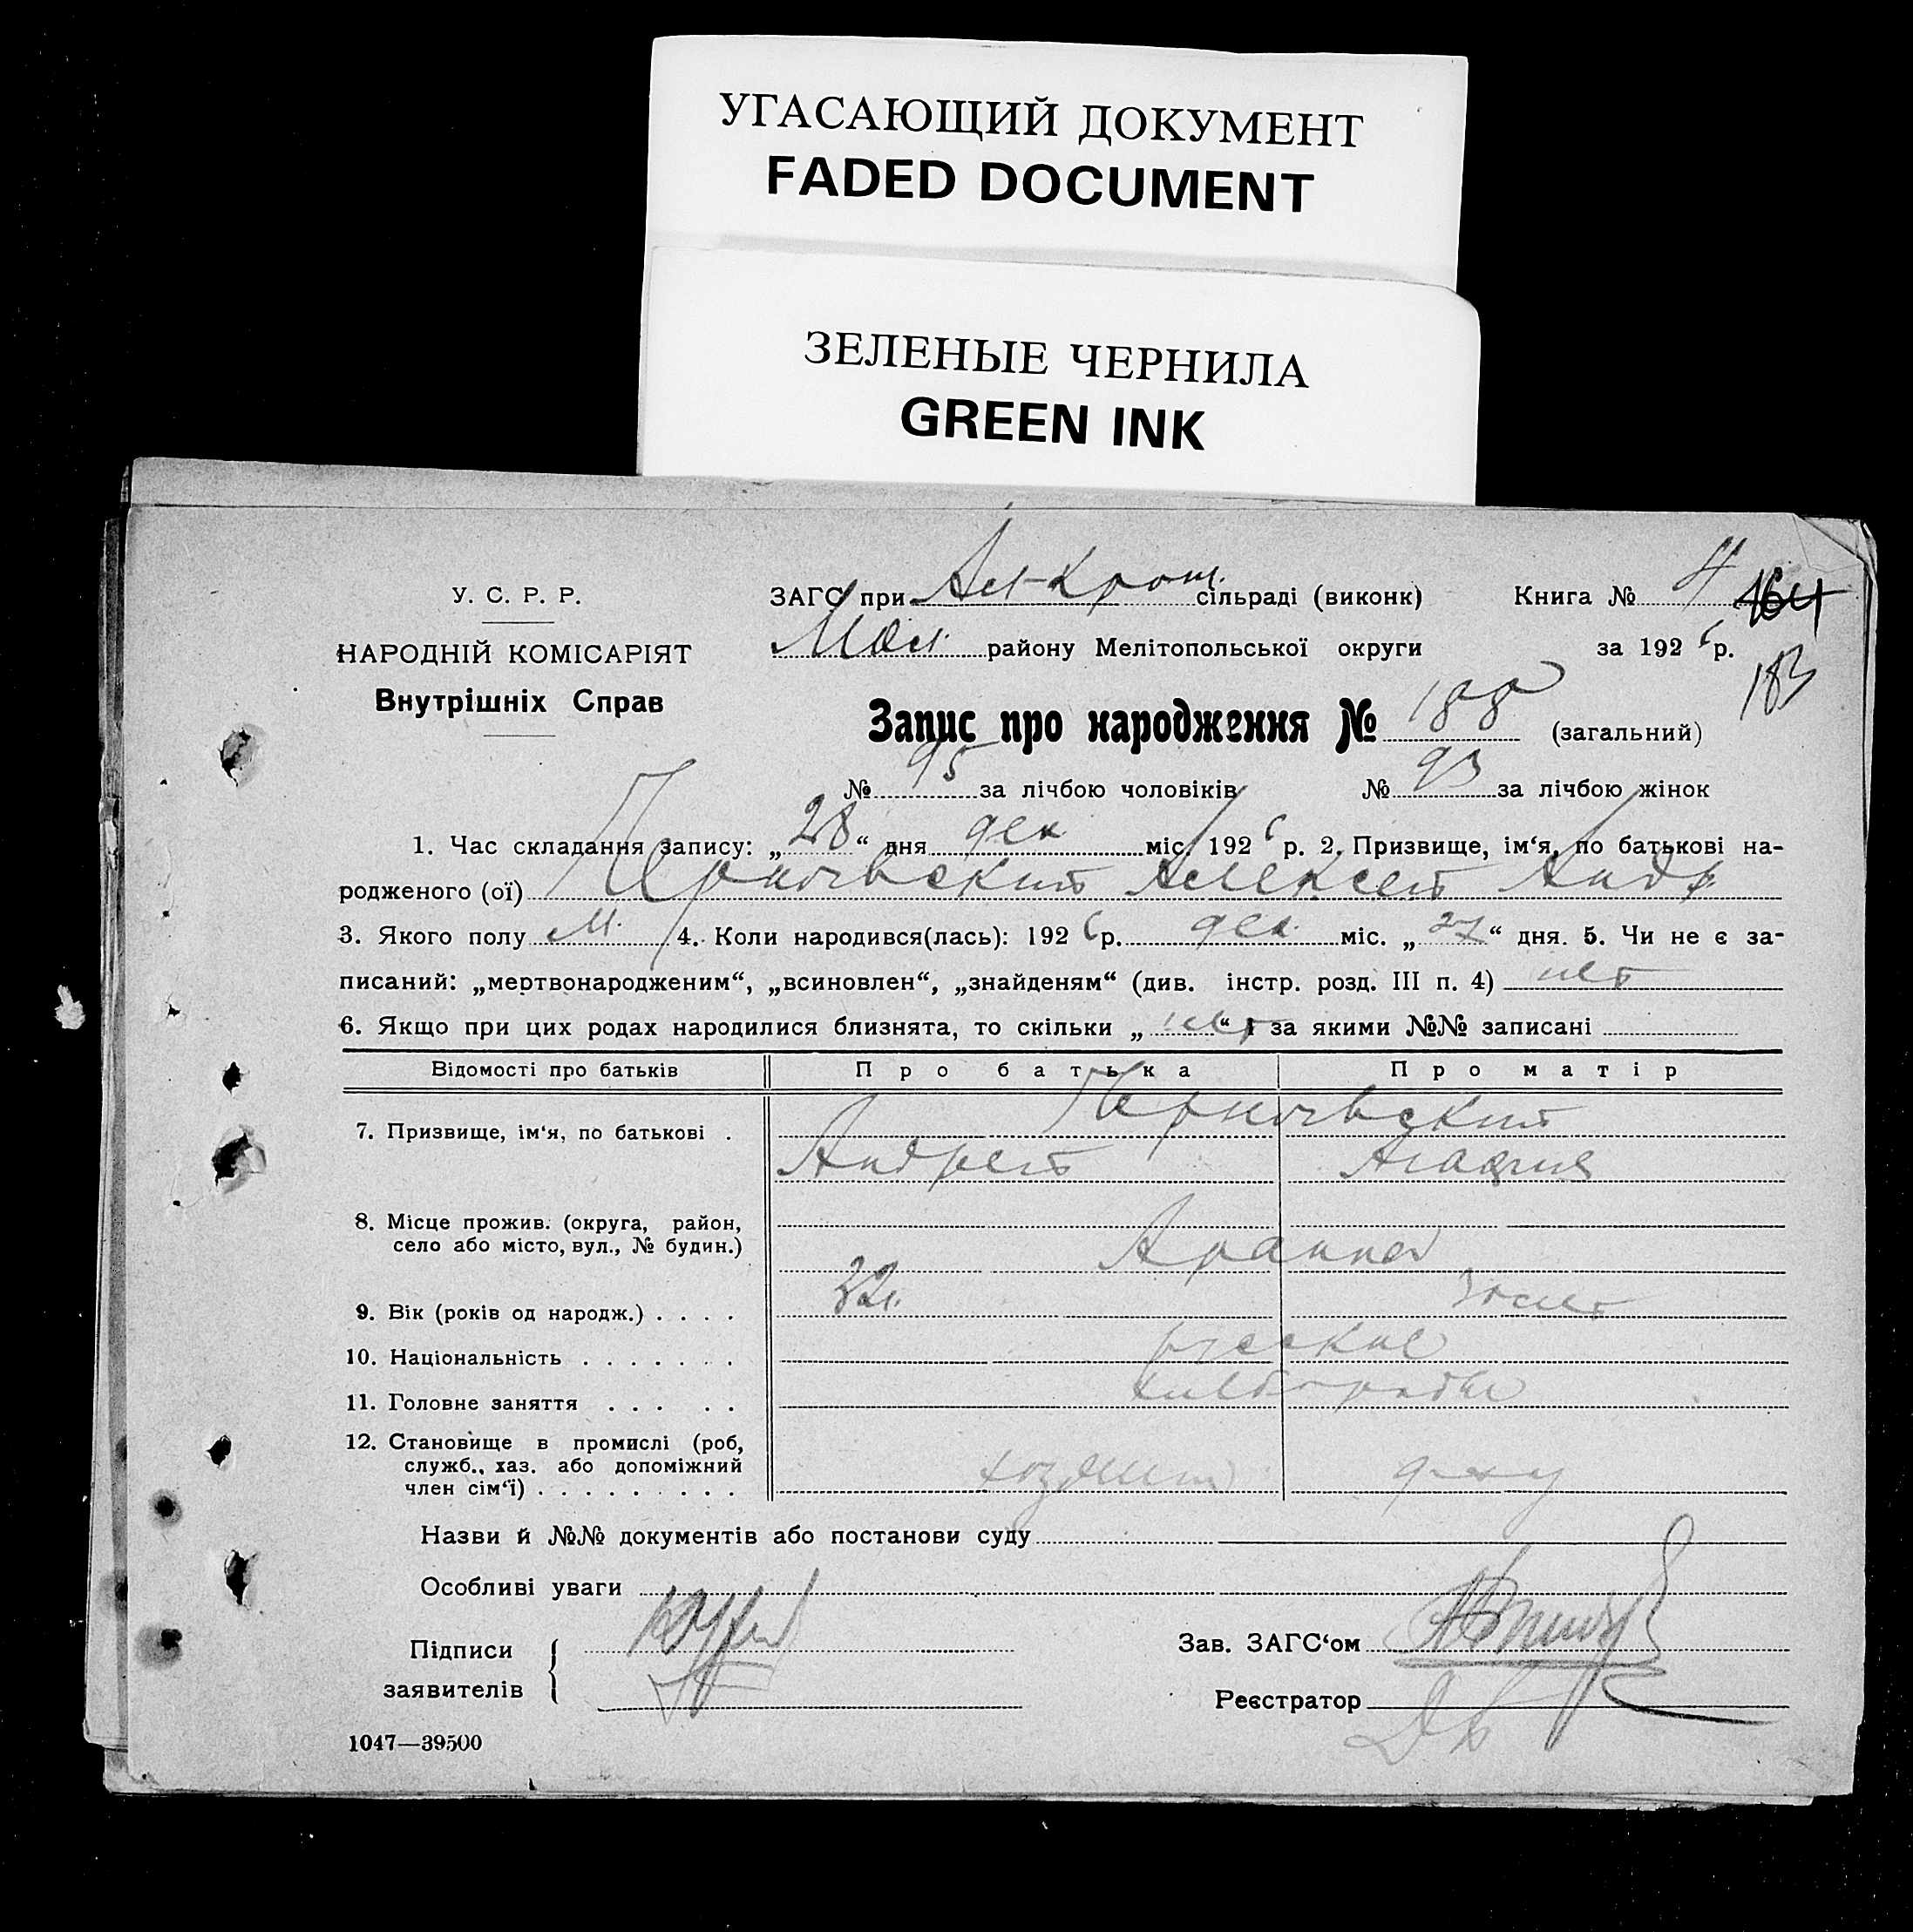 УГАСАЮЩИЙ ДОКУМЕНТ
FADED DOCUMENT
ЗЕЛЕНЫЕ ЧЕРНИЛА
GREEN INK
У. С. Р. Р.
НАРОДНІЙ КОМІСАРІЯТ
Внутрішніх Справ
ЗАГС при сільраді (виконк)
району Мелітопольської округи
Книга № 4 164
за 1926 р.
183
Запис про народження № 188 (загальний)
№ 95 за лічбою чоловіків № 93 за лічбою жінок
1. Час складання запису: „28“ дня дек міс. 1926 р. 2. Призвище, ім‘я, по батькові на-
родженого (ої) Алексей Андр
3. Якого полу М. 4. Коли народився(лась): 1926 р. дек. міс. „27“ дня. 5. Чи не є за-
писаний: „мертвонародженим“, „всиновлен“, „знайденям“ (див. інстр. розд. III п. 4) нет
6. Якщо при цих родах народилися близнята, то скільки „нет“ і за якими №№ записані
Відомості про батьків Про батька Про матір
7. Призвище, ім‘я, по батькові .
Андрей Агафия
8. Місце прожив. (округа, район,
село або місто, вул., № будин.)
9. Вік (років од народж.) . . . . 32 л. 30 лет
10. Національність . . . . . . . русские
11. Головне заняття . . . . .
12. Становище в промислі (роб,
служб., хаз. або допоміжний
член сім‘ї) . . . . . . . . . хозяин
Назви й №№ документів або постанови суду
Особливі уваги
Підписи
заявителів
Зав. ЗАГС‘ом
Реєстратор
1047—39500